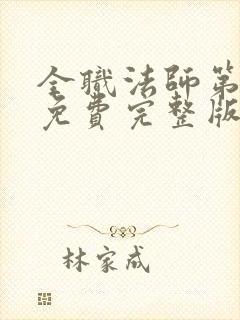 全職法師第
免費完整版
林家成